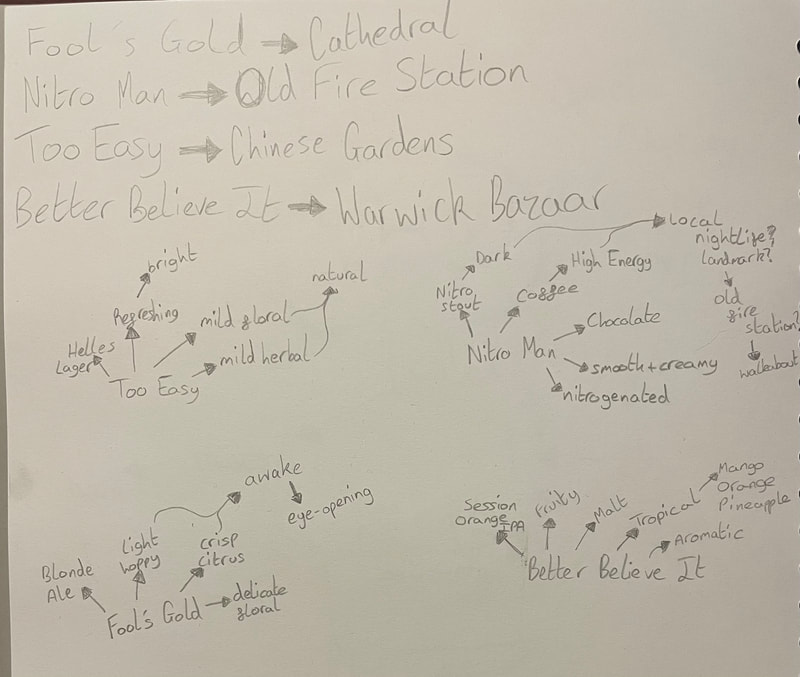 Fool's Gold → Cathedral
Nitro Man → Old Fire Station
Too Easy → Chinese Gardens
Better Believe It → Warwick Bazaar
bright
Refreshing
natural
mild floral
mild herbal
Helles
Lager
Too Easy
Local
nightlife?
landmark?
old
fire
station?
walkabout
Dark
High Energy
Nitro
stout
Coffee
Chocolate
Nitro Man
smooth + creamy
nitrogenated
awake
eye-opening
Light
hoppy
crisp
citrus
Blonde
Ale
delicate
floral
Fool's Gold
Mango
Orange
Pineapple
Session
Orange IPA
Fruity
Malt
Tropical
Aromatic
Better Believe It